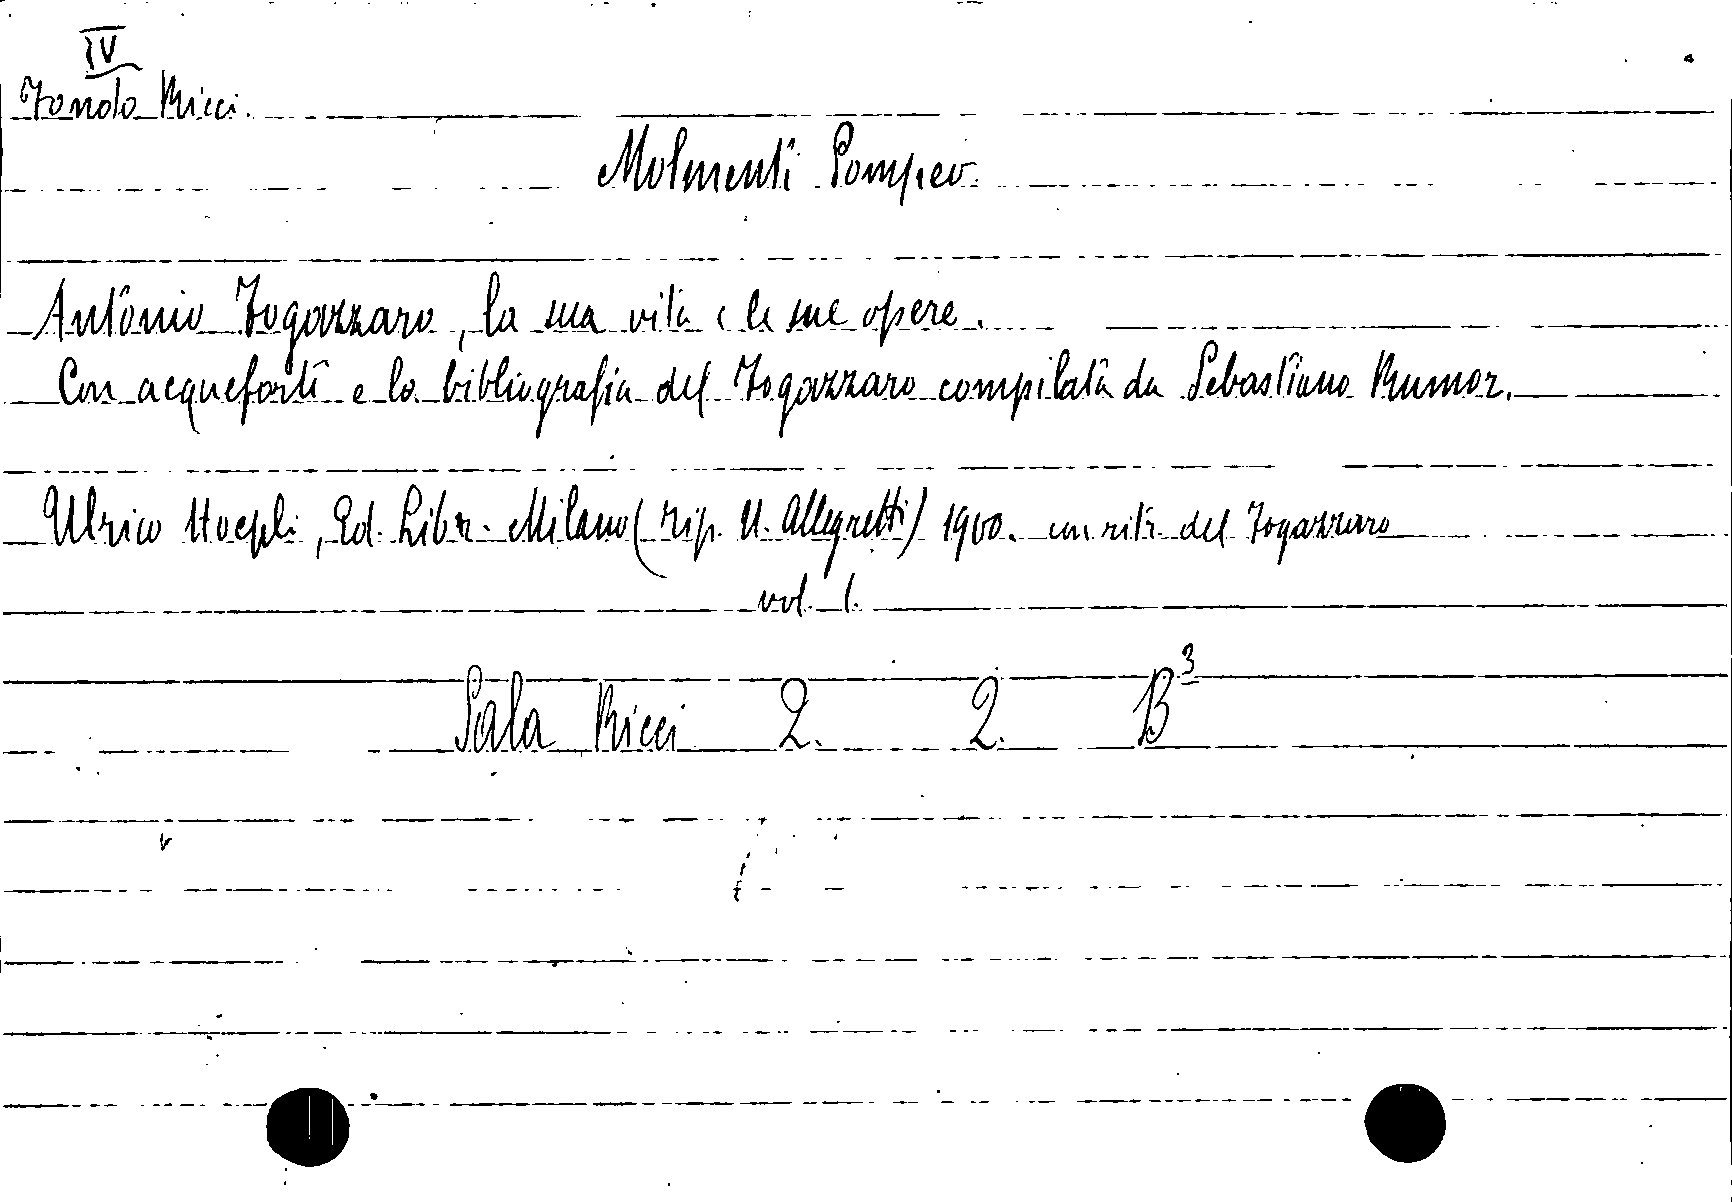 IV
Fondo Ricci.
Molmenti Pompeo.
Antonio Fogazzaro, la sua vita e le sue opere.
Con acqueforti e la bibliografia del Fogazzaro compilata da Sebastiano Rumor.
Ulrico Hoepli, Ed. Libr. Milano (tip. U. Allegretti) 1900. con ritr. del Fogazzaro
vol. 1.
Sala Ricci 2. 2. B3